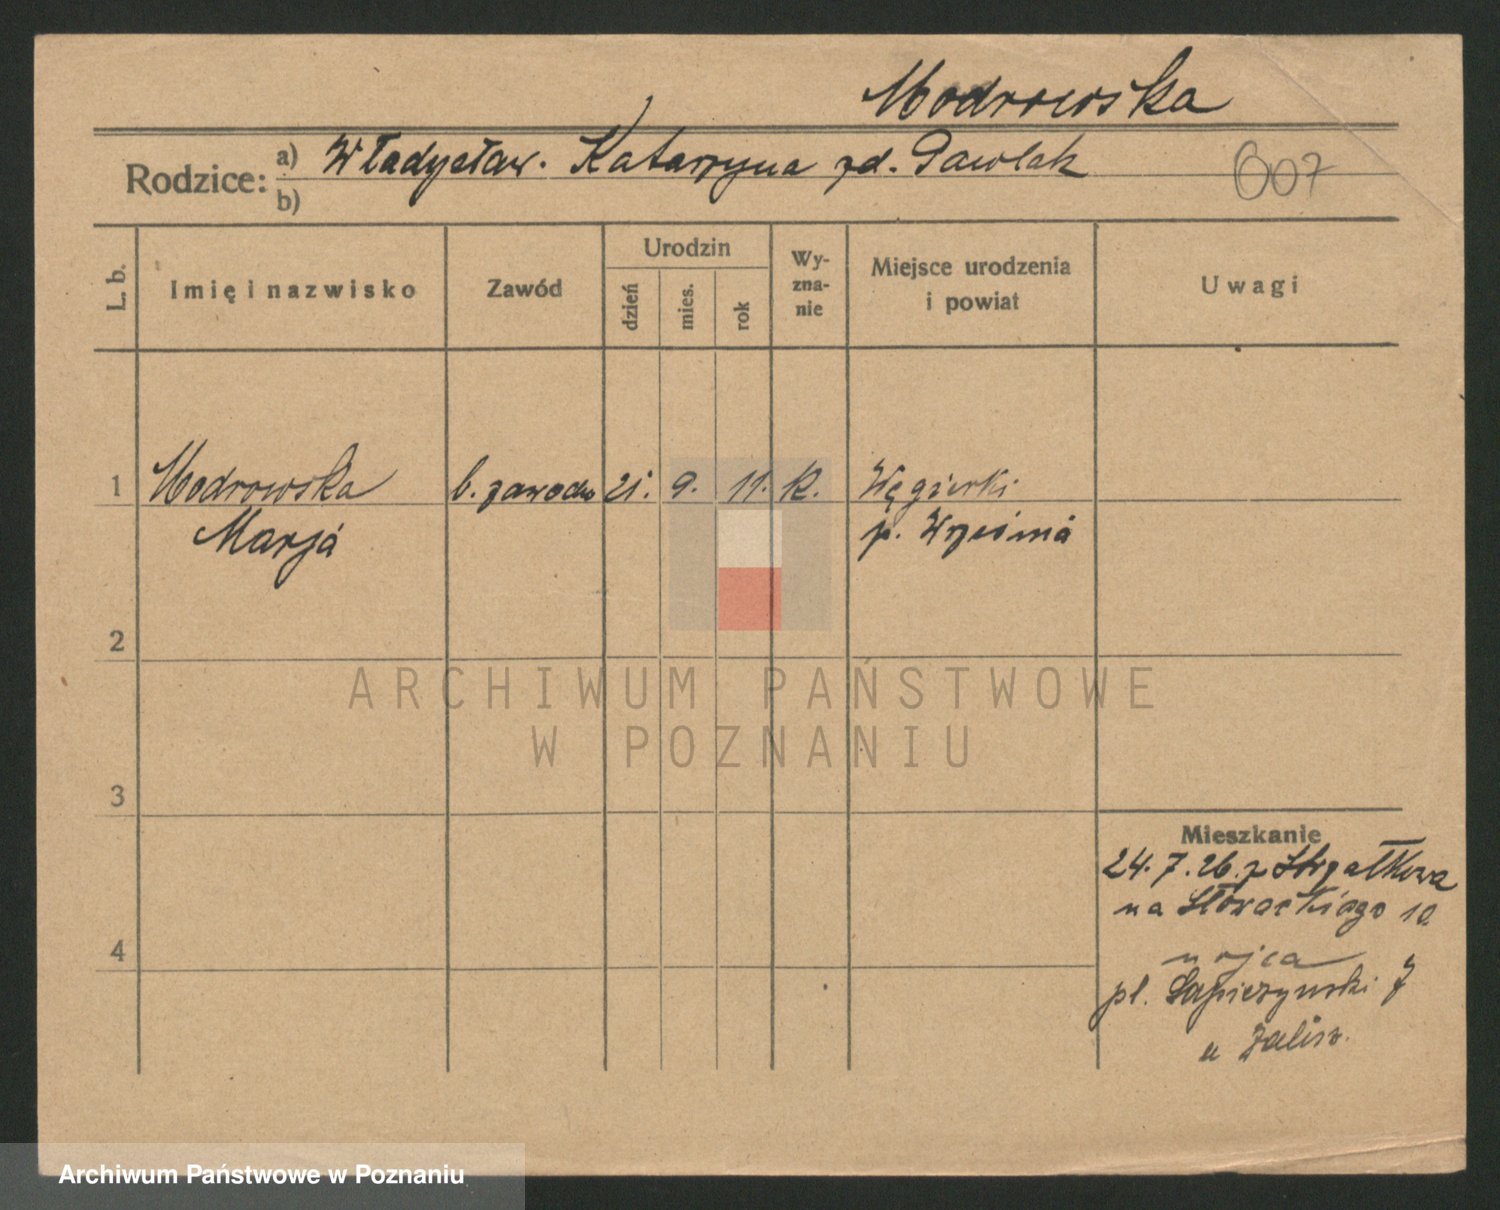 Modrowska
Rodzice: a) Władysław. Katarzyna zd. Pawlak
b)
607
L. b.
Imię i nazwisko
Zawód
Urodzin
dzień
mies.
rok
Wy-
zna-
nie
Miejsce urodzenia
i powiat
Uwagi
1 Modrowska b. zawodu 21. 9. 11. K. Węgierki
Marja p. Września
2
3
4
Mieszkanie
24.7.26. z Strzałkowa
na Słowackiego 10
u ojca
pl. Sapieżyński 7
u
ARCHIWUM PAŃSTWOWE
W POZNANIU
Archiwum Państwowe w Poznaniu